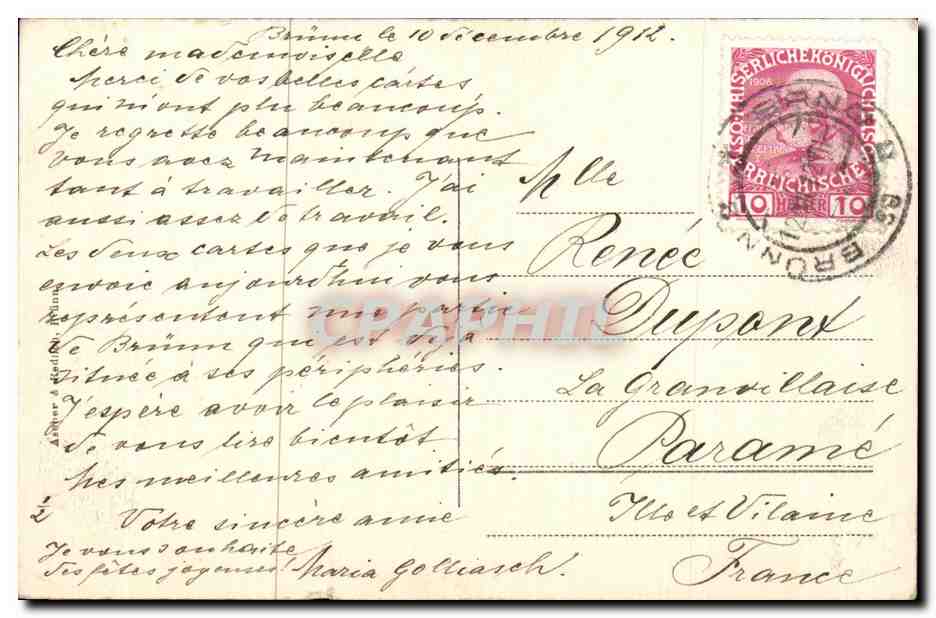 Brünn le 10 décembre 1912.
Chère mademoiselle
Merci de vos belles cartes
qui m'ont plu beaucoup.
Je regrette beaucoup que
vous avez maintenant
tant à travailler. J'ai
aussi assez de travail.
Les deux cartes que je vous
envoie aujourdhui vous
représentent une partie
de Brünn qui est déja
située à ses périphéries.
J'espère avoir le plaisir
de vous lire bientôt
Mes meilleures amitiés
Votre sincère amie
Je vous souhaite
des fêtes joyeuses!
Maria Golliasch.
1/2
Ascher & Redlich, Brünn
Mlle
Renée
Dupont
La Granvillaise
Paramé
Ille et Vilaine
France
KAISERLICHE KÖNIGLICHE
1908
10 HELLER 10
BRÜNN
CPAPHIL